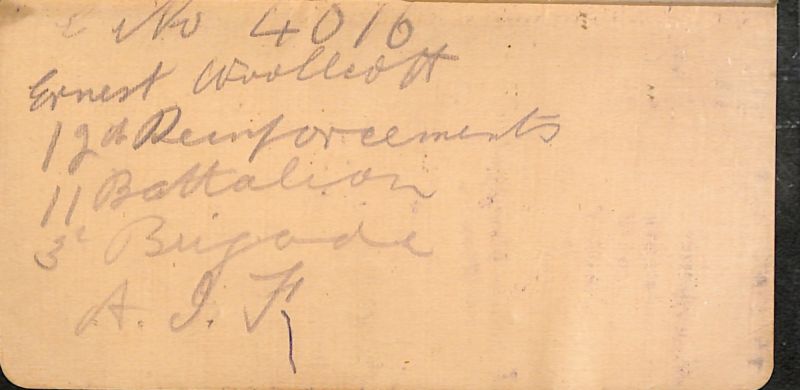 No 4016
Ernest Woollcott
12th Reinforcements
11 Battalion
3d Brigade
A. I. F